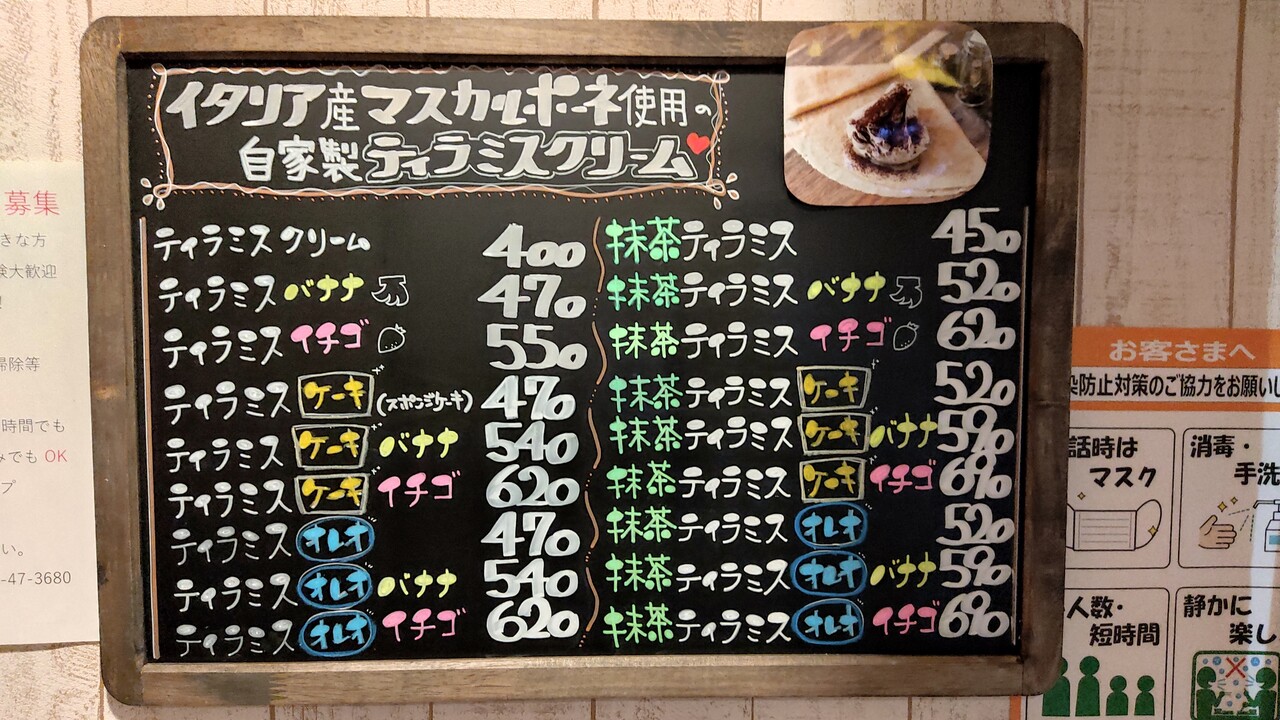 イタリア産マスカルポーネ使用の
自家製ティラミスクリーム
ティラミスクリーム 400
ティラミス バナナ 470
ティラミス イチゴ 550
ティラミス ケーキ (スポンジケーキ) 470
ティラミス ケーキ バナナ 540
ティラミス ケーキ イチゴ 620
ティラミス オレオ 470
ティラミス オレオ バナナ 540
ティラミス オレオ イチゴ 620
抹茶ティラミス 450
抹茶ティラミス バナナ 520
抹茶ティラミス イチゴ 620
抹茶ティラミス ケーキ 520
抹茶ティラミス ケーキ バナナ 590
抹茶ティラミス ケーキ イチゴ 690
抹茶ティラミス オレオ 520
抹茶ティラミス オレオ バナナ 590
抹茶ティラミス オレオ イチゴ 690
募集
きな方
大歓迎
掃除等
時間でも
みでも OK
プ
い。
-47-3680
お客さまへ
防止対策のご協力をお願い
話時は
マスク
消毒・
手洗
人数・
短時間
静かに
楽し